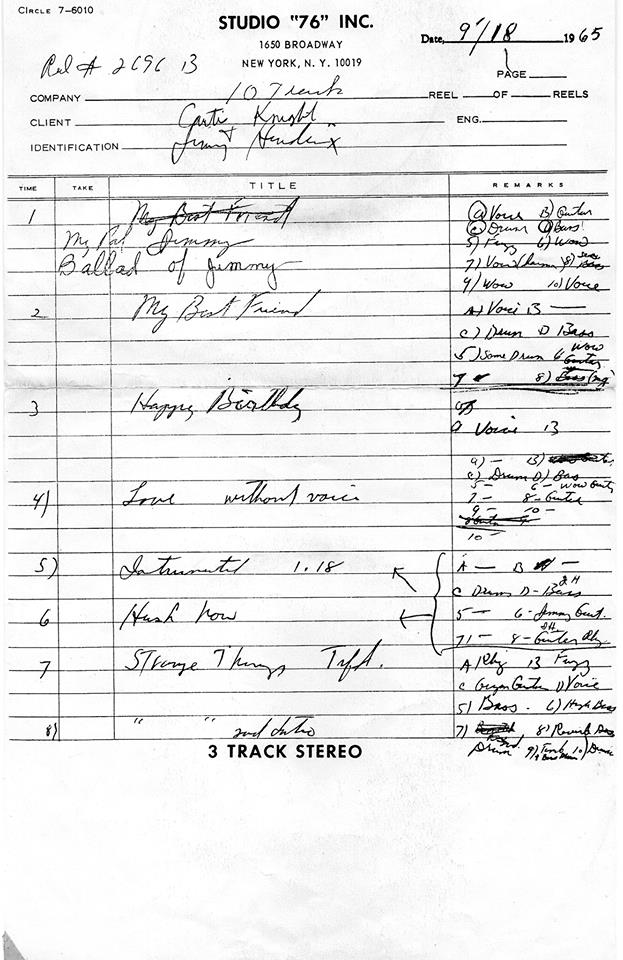 CIrcle 7-6010
STUDIO "76" INC.
1650 BROADWAY
NEW YORK, N. Y. 10019
Date, 9/18 1965
Rel # 2696 B
PAGE
COMPANY 10 Track REEL OF REELS
CLIENT Curtis Knight ENG.
IDENTIFICATION Jimmy Hendrix
TIME TAKE TITLE REMARKS
1 My Best Friend A) Voice B) Guitar
My Pal Jimmy C) Drum D) Bass
5) Fuzz 6) Wow
Ballad of Jimmy 7) Voice 8) Bass
9) Wow 10) Voice
2 My Best Friend A) Voice B —
C) Drum D Bass
5) Same Drum 6 Wow Guitar
7 8) Bass
3 Happy Birthday
a Voice B
a) — B)
C) Drum D) Bass
4) Love without voice 5 - 6 - Wow Guitar
7 - 8 - Guitar
9 - 10 -
10 -
5) Instrumental 1.18 A — B —
C Drum D - Bass J H
6 Hush Now 5 — 6 - Jimmy Guit.
71 - 8 - Guitar J.H.
7 Strange Things A) B Fuzz
C Guitar D) Voice
5) Bass 6) High Bass
8) " " 7) 8) Bass
Drum 9) 10)
3 TRACK STEREO